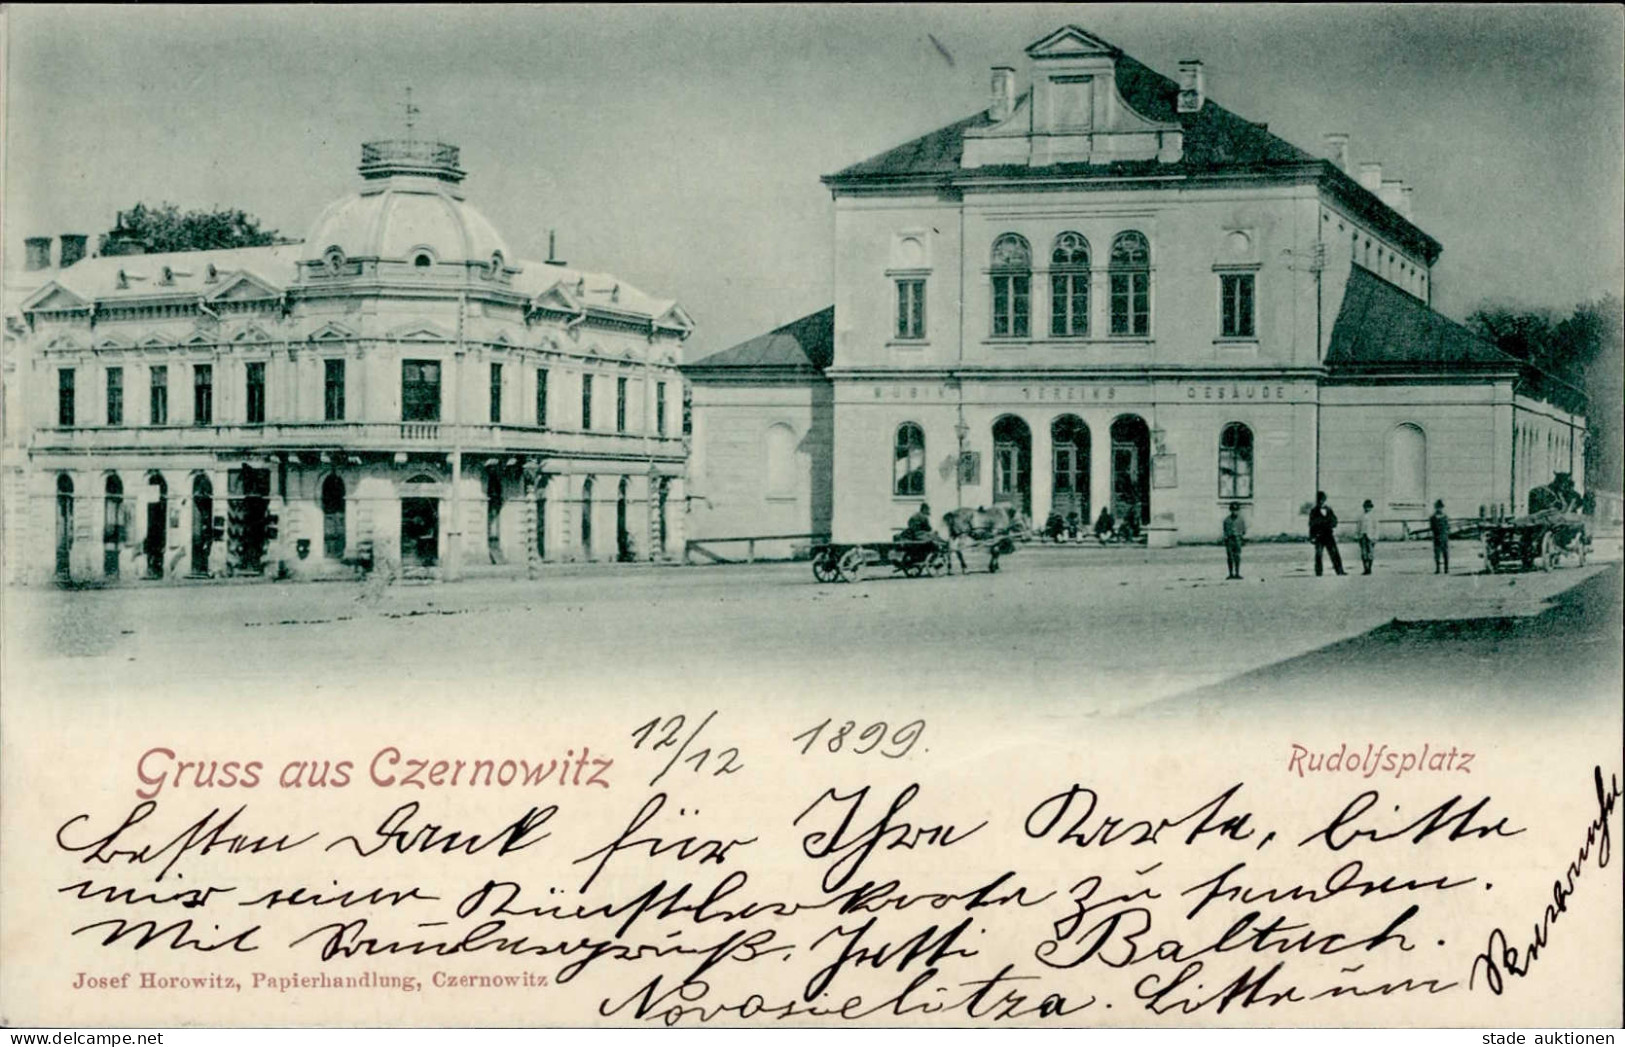 MUSIK VEREINS GEBÄUDE
Gruss aus Czernowitz
12/12 1899.
Rudolfsplatz
Besten Dank für Ihre Karte, bitte
mir eine Künstlerkarte zu senden.
Mit Bundesgruß. Jetti Baltuch.
Josef Horowitz, Papierhandlung, Czernowitz
Novosielitza. Bitte um
stade auktionen
www.delcampe.net